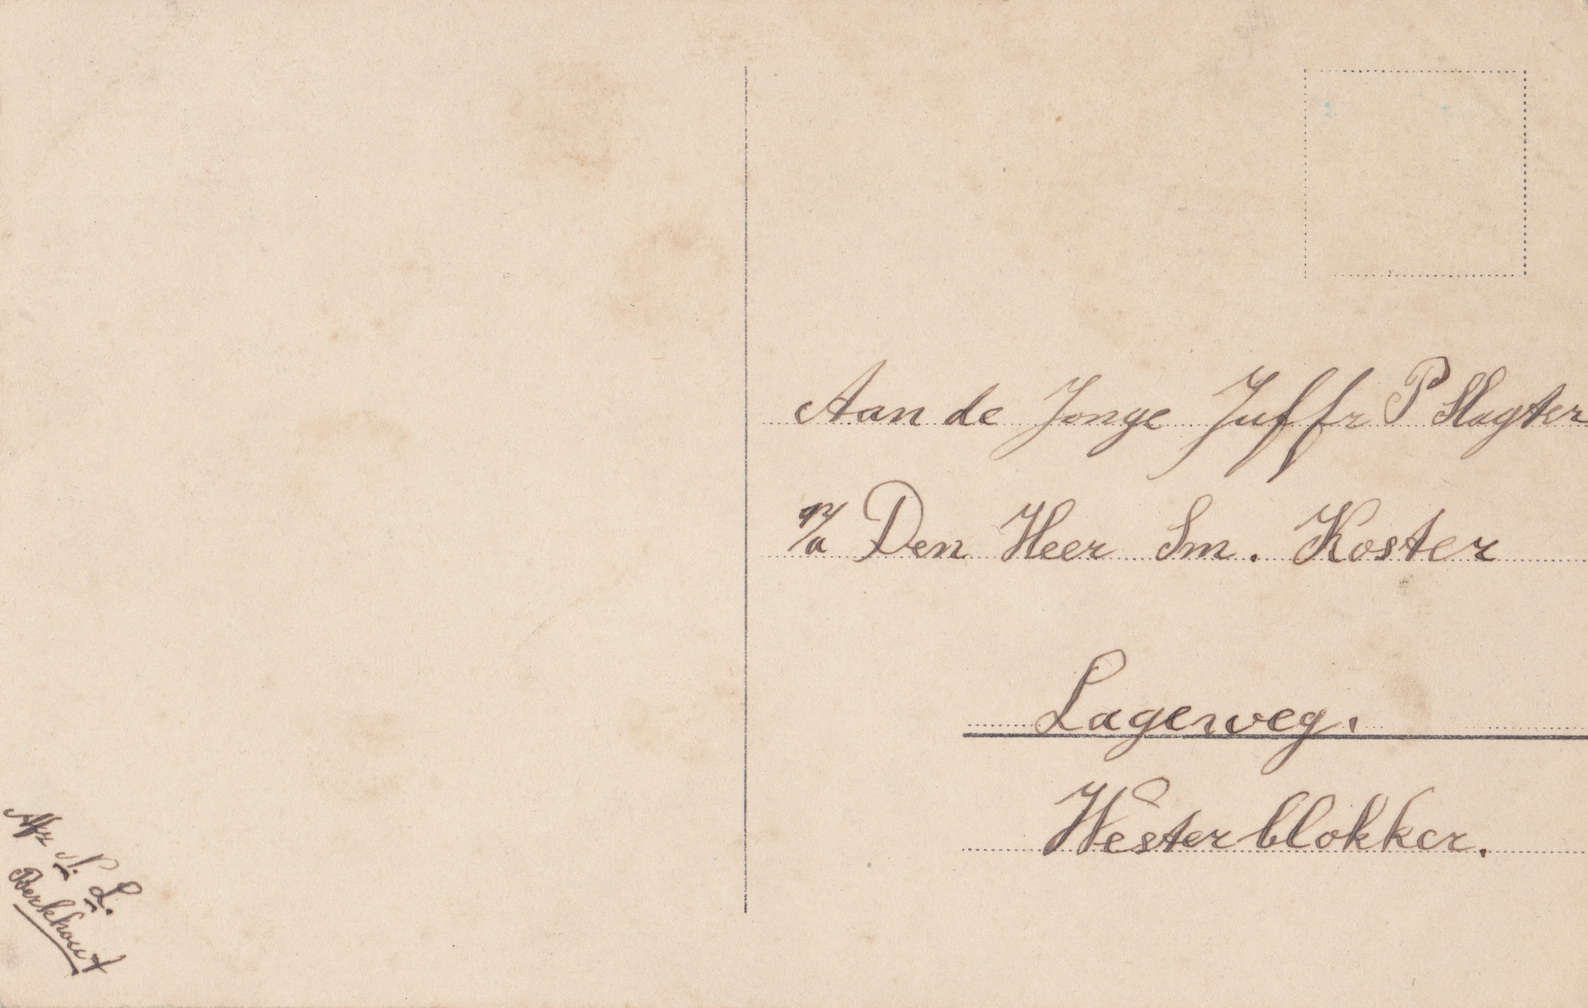 Aan de Jonge Juffr P Slagter
p/a Den Heer Sm. Koster
Lageweg.
Westerblokker.
Afz
L.
Berkhout